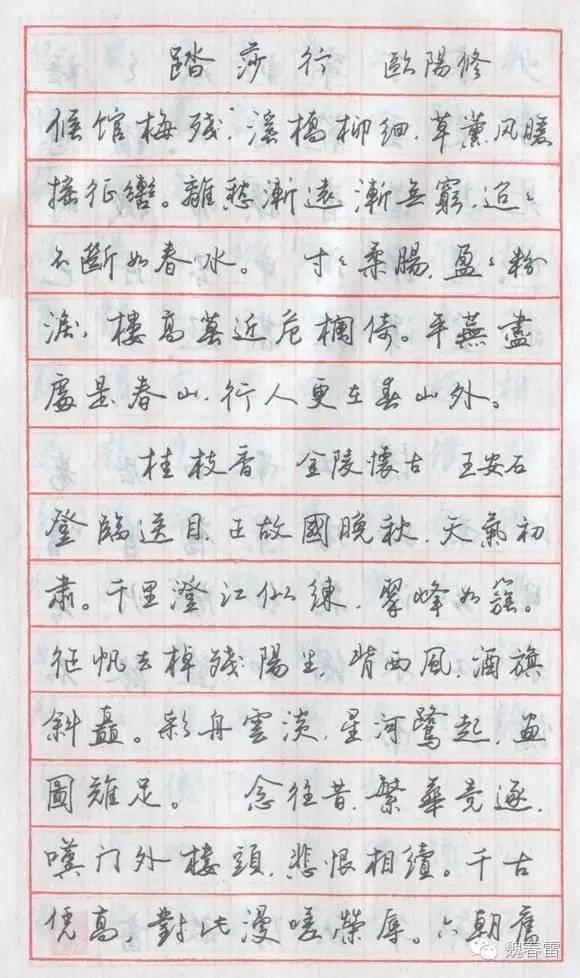 踏莎行 歐陽修
候馆梅残，溪橋柳細，草薰风暖
摇征轡。離愁漸遠漸無窮，迢〻
不斷如春水。 寸〻柔腸，盈〻粉
淚，樓高莫近危欄倚。平蕪盡
處是春山，行人更在春山外。
桂枝香 金陵懷古 王安石
登臨送目，正故國晚秋，天氣初
肅。千里澄江似練，翠峰如簇。
征帆去棹残陽里，背西風，酒旗
斜矗。彩舟雲淡，星河鷺起，画
圖難足。 念往昔，繁華竞逐，
嘆门外樓頭，悲恨相續。千古
凭高，對此漫嗟榮辱。六朝舊
魏春雷